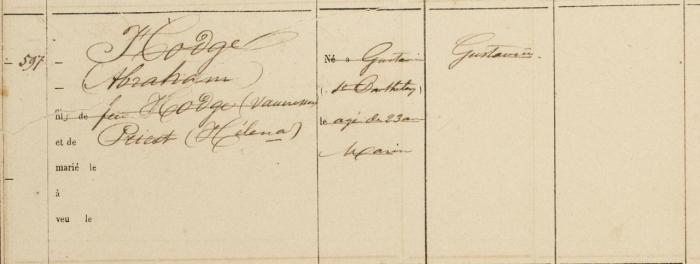 597
Hodge
(Abraham)
fils de feu Hodge
et de Priest (Hélena)
marié le
à
veuf le
Né à Gustavia
(St Barthélemy)
le agé de 23 ans
Marin
Gustavia.